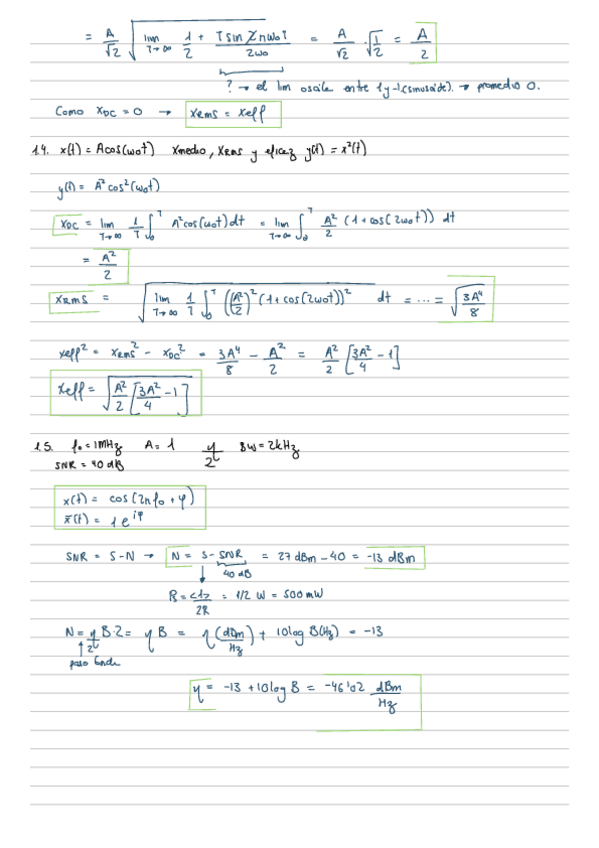 = A/√2 √( lim T→∞ 1/2 + T sin 2nω₀T / 2ω₀ ) = A/√2 · √(1/2) = A/2
? → el lim oscila entre 1 y -1 (sinusoide). → promedio 0.
Como XDC = 0 → XRMS = Xeff
1.4. x(t) = A cos(ω₀t) Xmedio, XRMS y eficaz y(t) = x²(t)
y(t) = A² cos²(ω₀t)
XDC = lim T→∞ 1/T ∫₀ᵀ A² cos(ω₀t) dt = lim T→∞ ∫₀ᵀ A²/2 (1 + cos(2ω₀t)) dt
= A²/2
XRMS = √( lim T→∞ 1/T ∫₀ᵀ (A²/2)² (1 + cos(2ω₀t))² dt = ... = √(3A⁴/8)
Xeff² = XRMS² - XDC² = 3A⁴/8 - A²/2 = A²/2 [3A²/4 - 1]
Xeff = √( A²/2 [3A²/4 - 1] )
1.5. f₀ = 1MHz A = 1 η/2 BW = 2kHz
SNR = 40 dB
x(t) = cos(2πf₀ + φ)
x̃(t) = 1 e^iφ
SNR = S - N → N = S - SNR = 27 dBm - 40 = -13 dBm
40 dB
= 1/2 W = 500 mW
N = η/2 B·2 = η B = η (dBm/Hz) + 10log B(Hz) = -13
paso banda
η = -13 + 10log B = -46'02 dBm/Hz